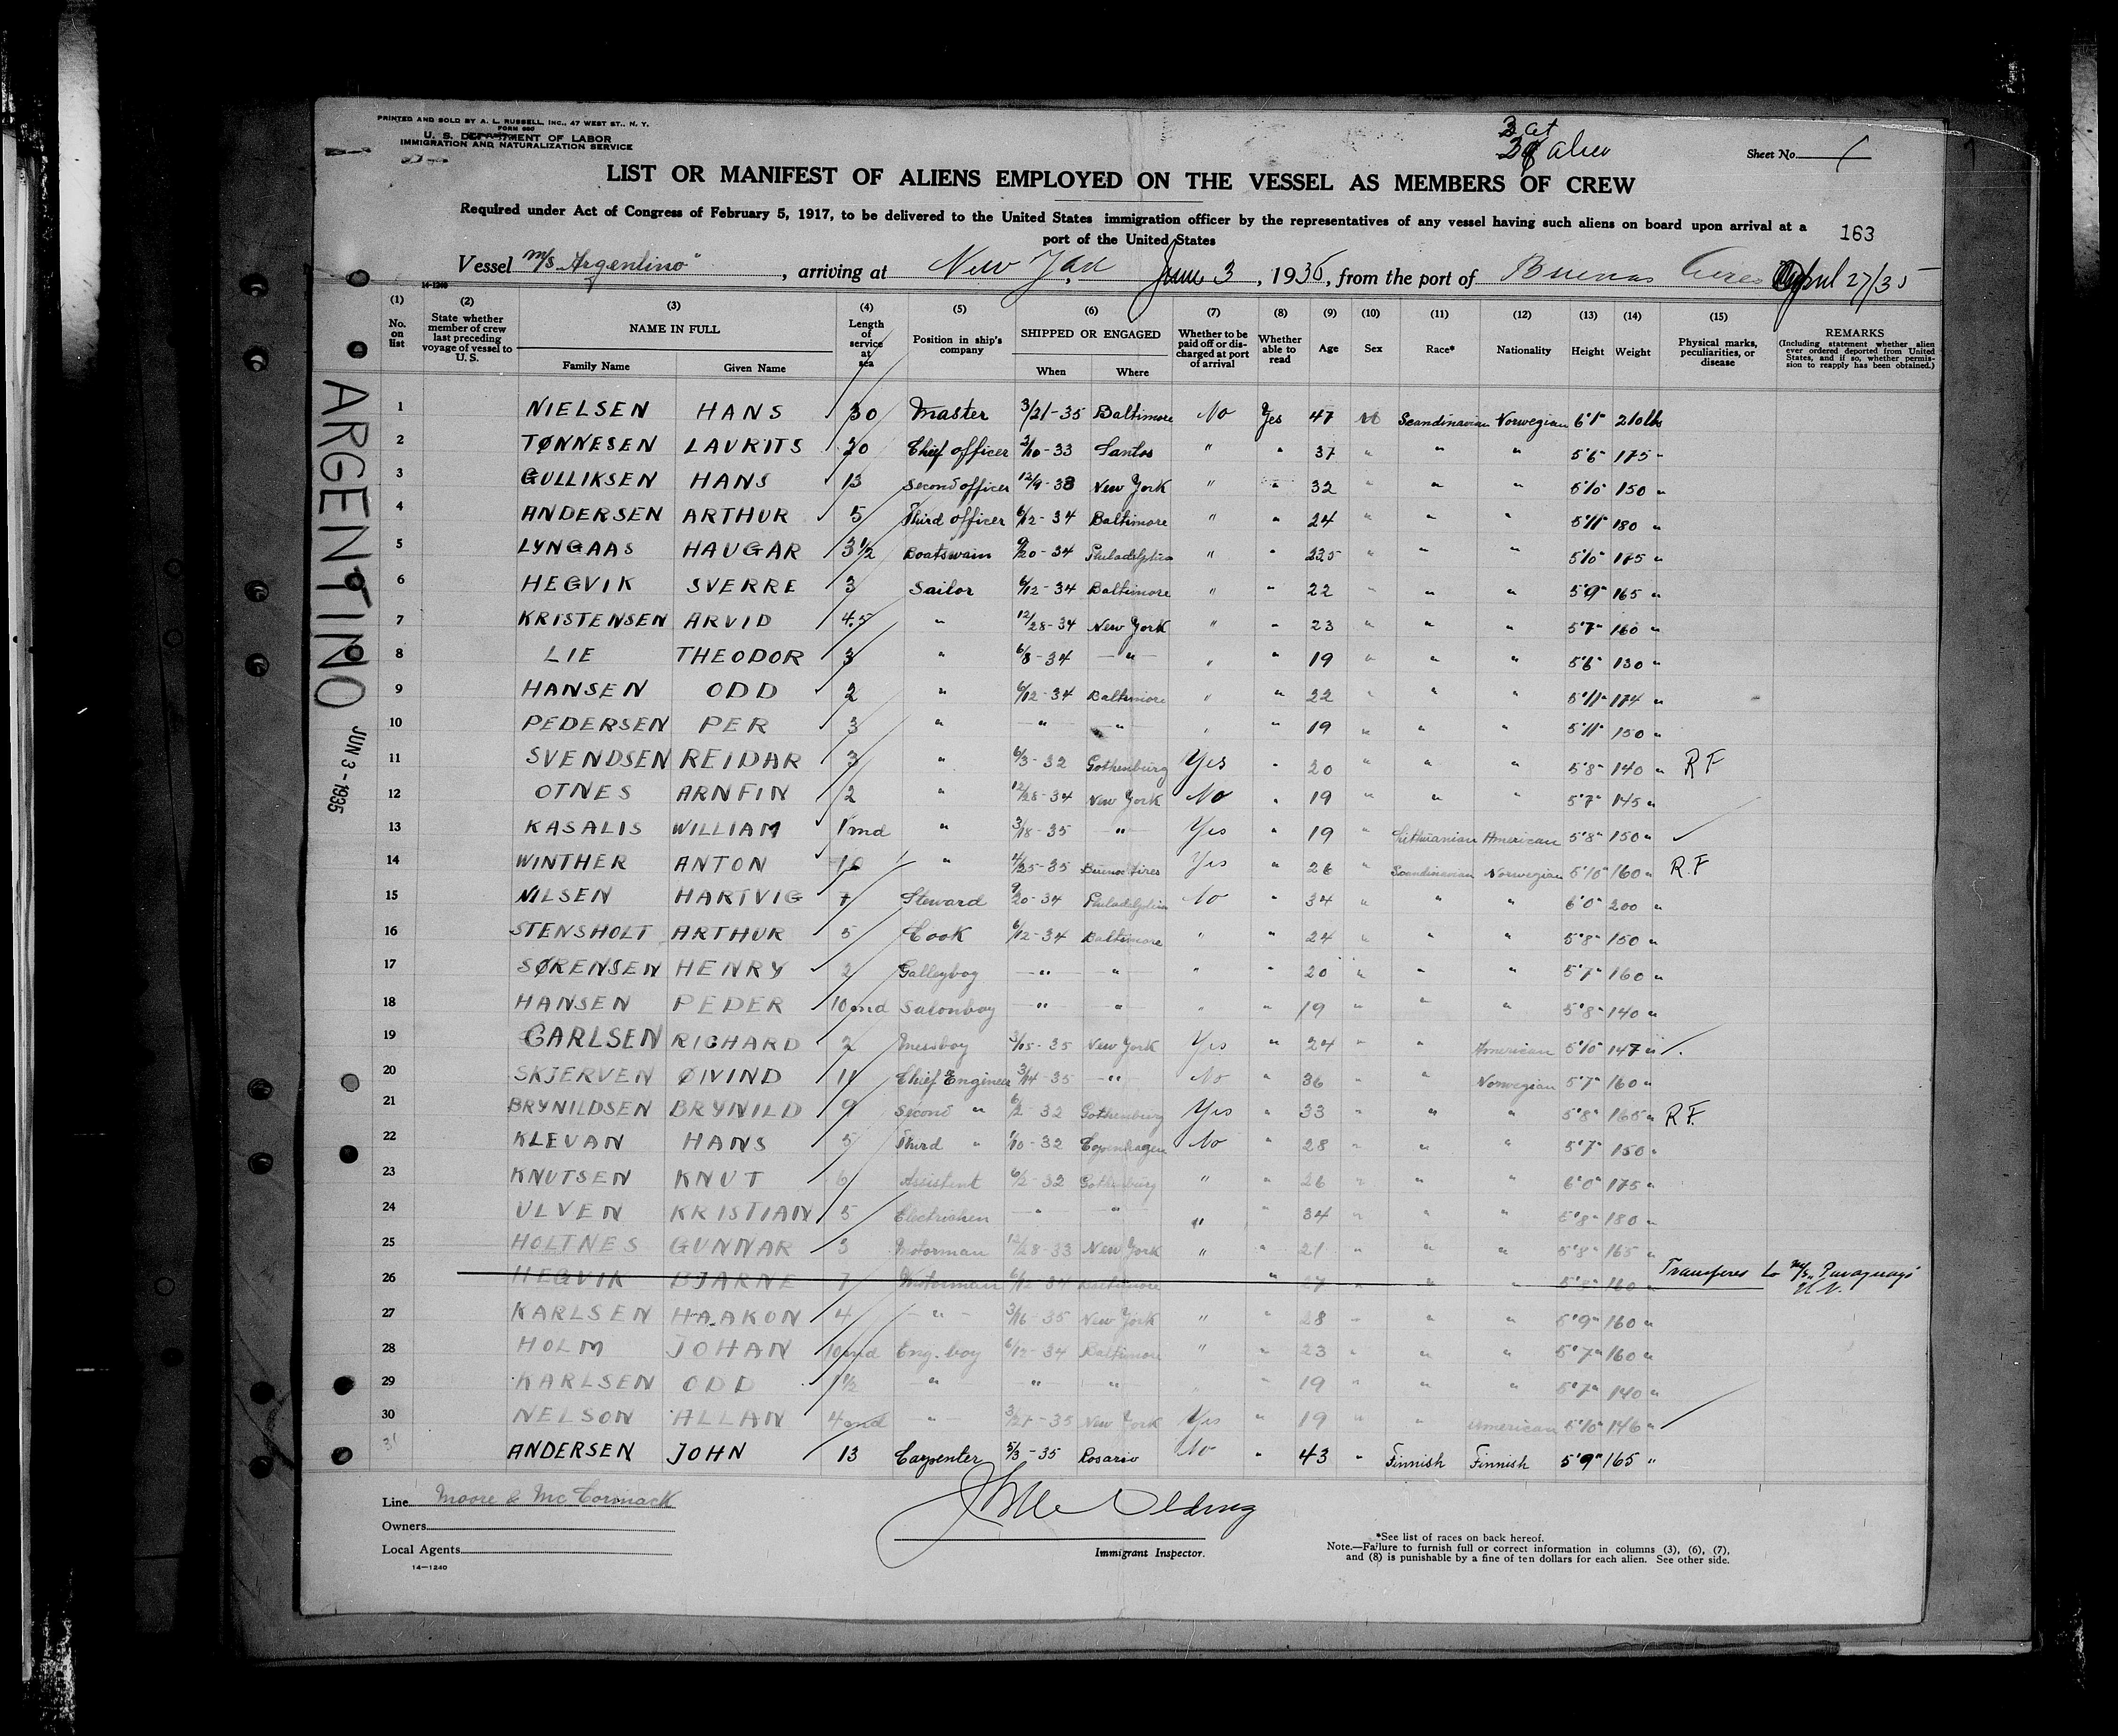 PRINTED AND SOLD BY A. L. RUSSELL, INC., 47 WEST ST., N. Y.
FORM 680
U. S. DEPARTMENT OF LABOR
IMMIGRATION AND NATURALIZATION SERVICE
3 at
alien
Sheet No. 1
LIST OR MANIFEST OF ALIENS EMPLOYED ON THE VESSEL AS MEMBERS OF CREW
Required under Act of Congress of February 5, 1917, to be delivered to the United States immigration officer by the representatives of any vessel having such aliens on board upon arrival at a
port of the United States
163
Vessel m/s "Argentino", arriving at New York June 3, 1935, from the port of Buenos Aires April 27/35
14-1240
(1) No. on list (2) State whether member of crew last preceding voyage of vessel to U. S. (3) NAME IN FULL Family Name Given Name (4) Length of service at sea (5) Position in ship's company (6) SHIPPED OR ENGAGED When Where (7) Whether to be paid off or discharged at port of arrival (8) Whether able to read (9) Age (10) Sex (11) Race* (12) Nationality (13) Height (14) Weight (15) Physical marks, peculiarities, or disease REMARKS (Including statement whether alien ever ordered deported from United States, and if so, whether permission to reapply has been obtained.)
ARGENTINO JUN 3 - 1935
1 NIELSEN HANS 30 Master 3/21-35 Baltimore No Yes 47 M Scandinavian Norwegian 6'1" 210 lbs
2 TØNNESEN LAURITS 20 Chief officer 3/10-33 Santos " " 37 " " " 5'6" 175 "
3 GULLIKSEN HANS 13 Second officer 12/9-33 New York " " 32 " " " 5'10" 150 "
4 ANDERSEN ARTHUR 5 Third officer 6/12-34 Baltimore " " 24 " " " 5'11" 180 "
5 LYNGAAS HAUGAR 3½ Boatswain 9/20-34 Philadelphia " " 235 " " " 5'10" 175 "
6 HEGVIK SVERRE 3 Sailor 6/12-34 Baltimore " " 22 " " " 5'9" 165 "
7 KRISTENSEN ARVID 4.5 " 12/28-34 New York " " 23 " " " 5'7" 160 "
8 LIE THEODOR 3 " 6/8-34 " " " 19 " " " 5'6" 130 "
9 HANSEN ODD 2 " 6/12-34 Baltimore " " 22 " " " 5'11" 174 "
10 PEDERSEN PER 3 " " " " " 19 " " " 5'11" 150 "
11 SVENDSEN REIDAR 3 " 6/3-32 Gothenburg Yes " 20 " " " 5'8" 140 " RF
12 OTNES ARNFIN 2 " 12/28-34 New York No " 19 " " " 5'7" 145 "
13 KASALIS WILLIAM 1 md " 3/18-35 " Yes " 19 " Lithuanian American 5'8" 150 "
14 WINTHER ANTON 10 " 4/25-35 Buenos Aires Yes " 26 " Scandinavian Norwegian 5'10" 160 " R.F
15 NILSEN HARTVIG 7 Steward 9/20-34 Philadelphia No " 34 " " " 6'0" 200 "
16 STENSHOLT ARTHUR 5 Cook 6/12-34 Baltimore " " 24 " " " 5'8" 150 "
17 SØRENSEN HENRY 2 Galleyboy " " " " 20 " " " 5'7" 160 "
18 HANSEN PEDER 10 md Salonboy " " " " 19 " " " 5'8" 140 "
19 CARLSEN RICHARD 2 Messboy 3/15-35 New York Yes " 24 " " American 5'10" 147 "
20 SKJERVEN ØIVIND 11 Chief Engineer 3/14-35 " No " 36 " " Norwegian 5'7" 160 "
21 BRYNILDSEN BRYNILD 9 Second " 6/2-32 Gothenburg Yes " 33 " " " 5'8" 165 " R.F.
22 KLEVAN HANS 5 Third " 1/10-32 Copenhagen No " 28 " " " 5'7" 150 "
23 KNUTSEN KNUT 6 Assistent 6/2-32 Gothenburg " " 26 " " " 6'0" 175 "
24 ULVEN KRISTIAN 5 Electrichen " " " " 34 " " " 5'8" 180 "
25 HOLTNES GUNNAR 3 Motorman 12/28-33 New York " " 21 " " " 5'8" 165 "
26 HEGVIK BJARNE 7 Motorman 6/12-34 Baltimore " 27 " " 5'8" 160 " Transferes to m/s "Paraguay"
27 KARLSEN HAAKON 4 " 3/16-35 New York " " 28 " " " 5'9" 160 "
28 HOLM JOHAN 10 md Eng. boy 6/12-34 Baltimore " " 23 " " " 5'7" 160 "
29 KARLSEN ODD 1½ " " " " " 19 " " " 5'7" 140 "
30 NELSON ALLAN 4 md " 3/21-35 New York Yes " 19 " " American 5'10" 146 "
31 ANDERSEN JOHN 13 Carpenter 5/3-35 Rosario No " 43 " Finnish Finnish 5'9" 165 "
Line Moore & McCormack
Owners
Local Agents
14—1240
Immigrant Inspector.
*See list of races on back hereof.
Note.—Failure to furnish full or correct information in columns (3), (6), (7),
and (8) is punishable by a fine of ten dollars for each alien. See other side.